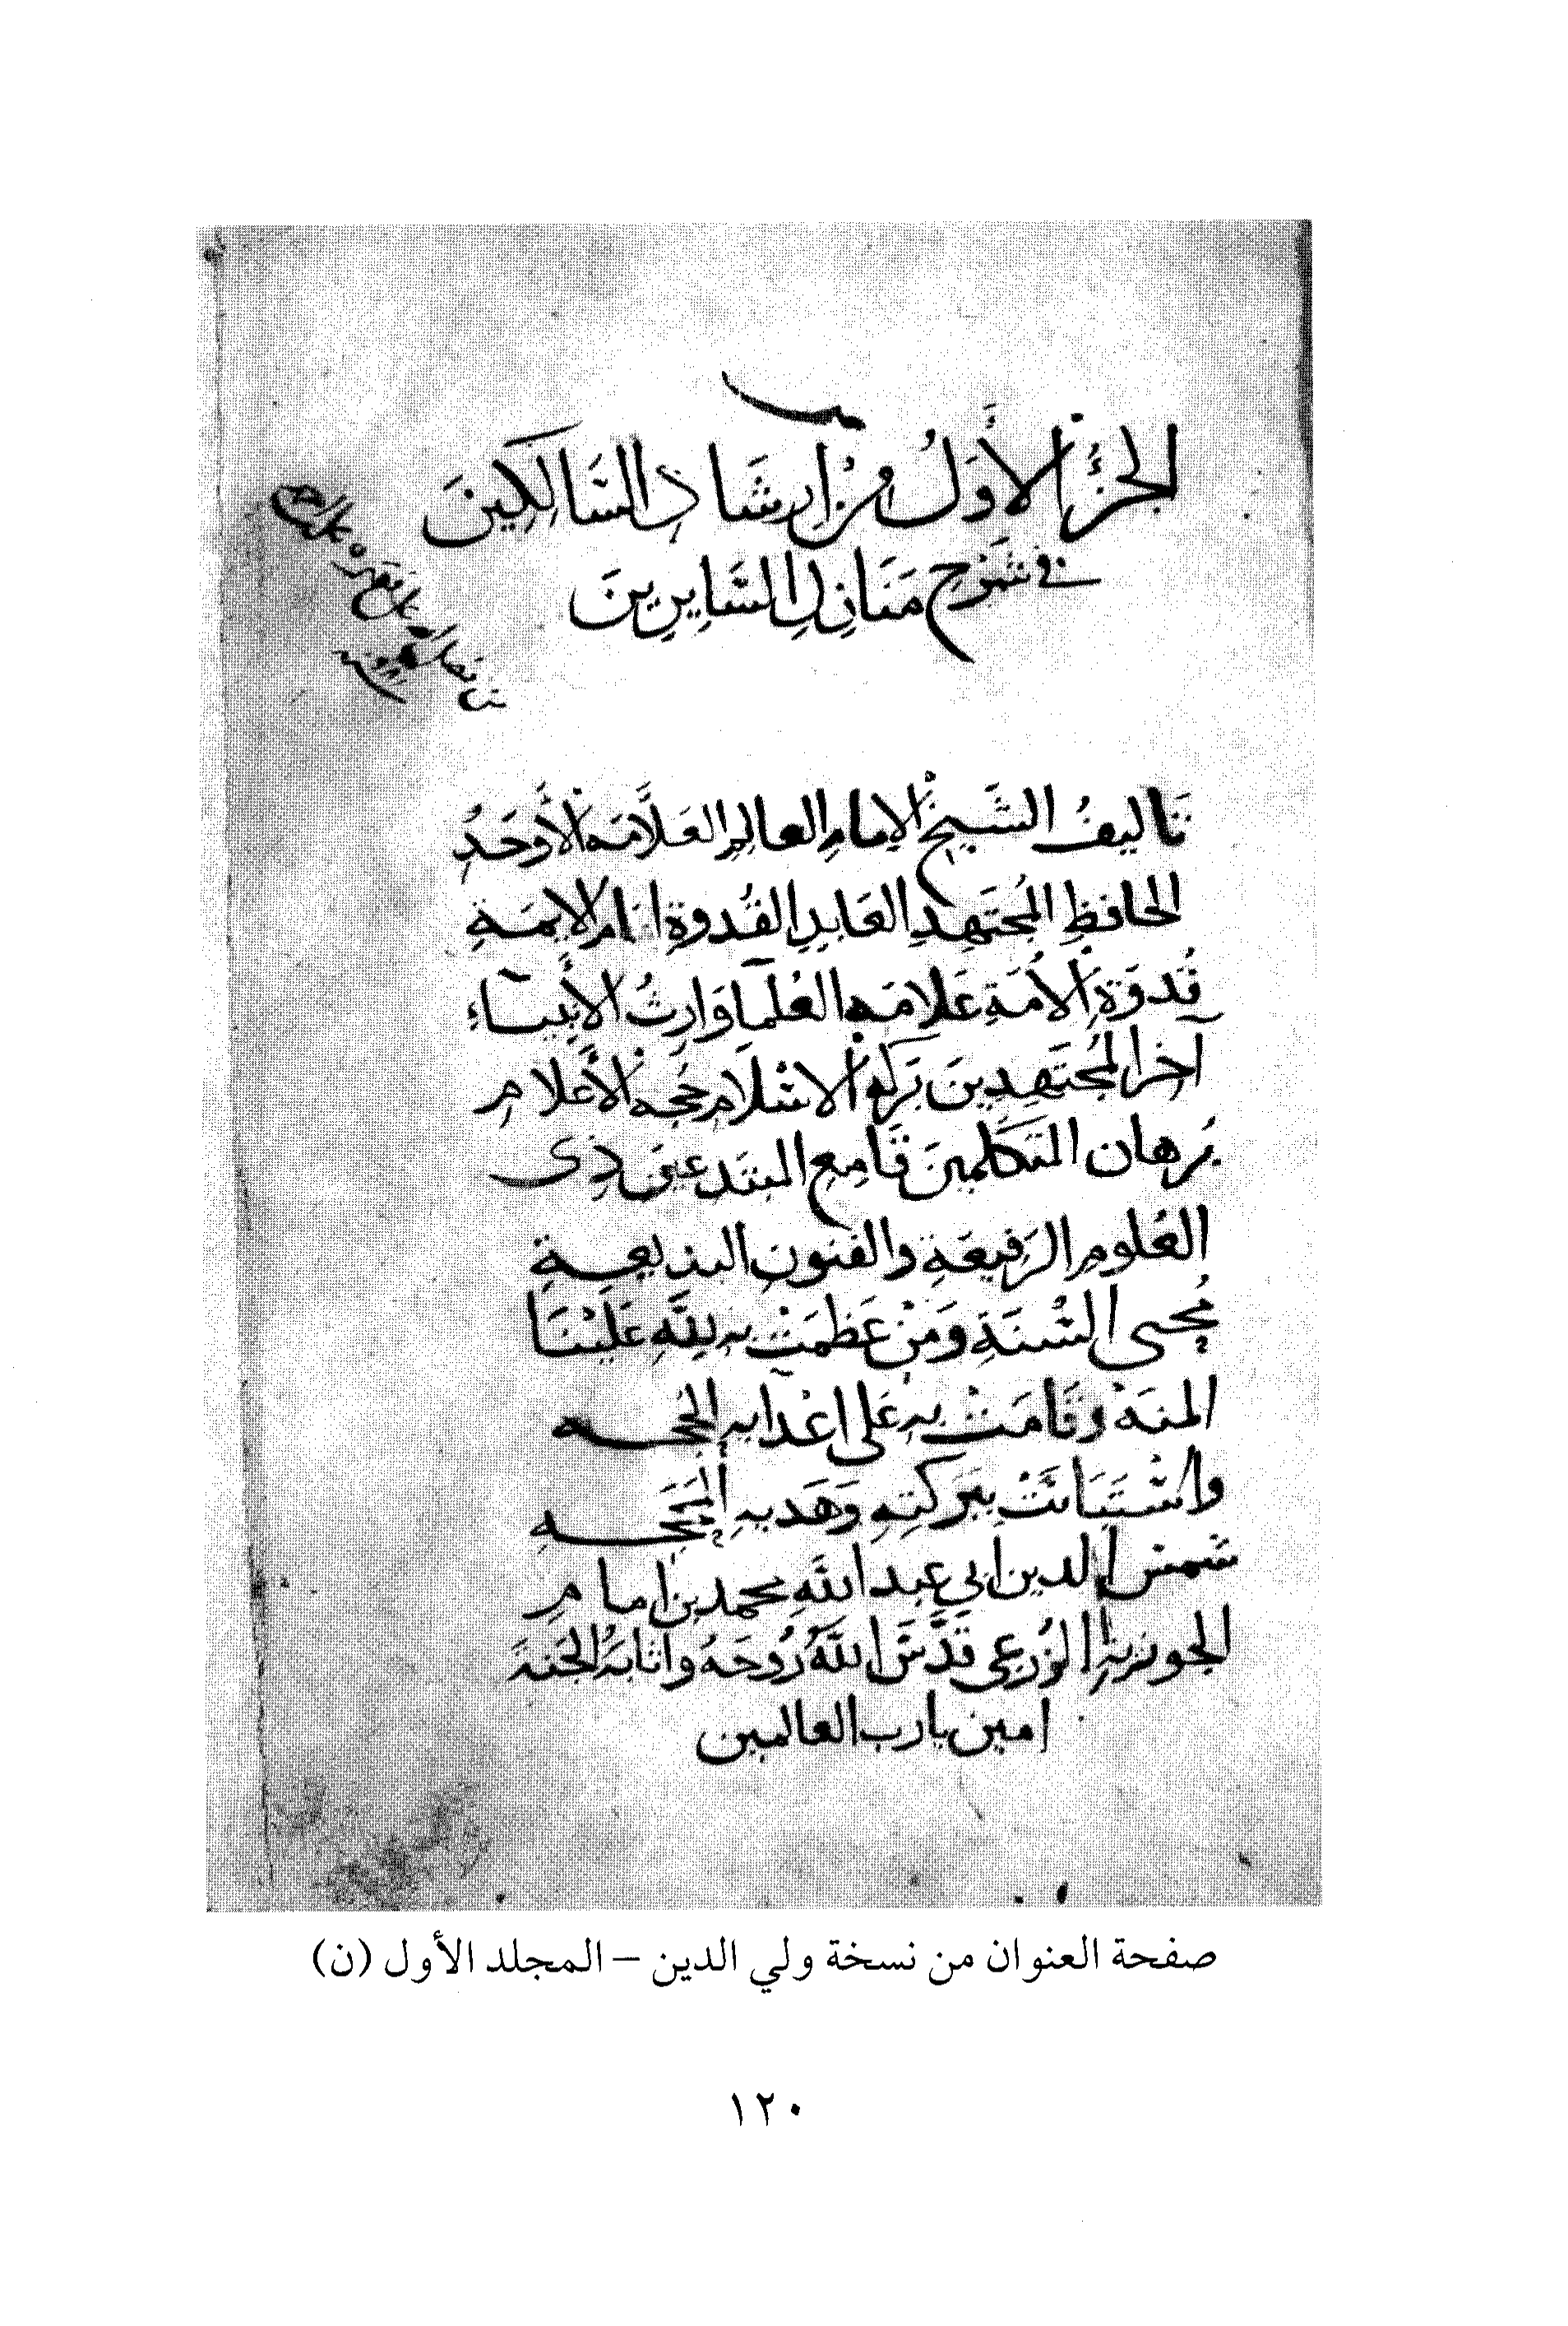 الجُزْءُ الأَوَّلُ مِنْ إرشَادِ السَّالِكِينَ
في شَرْحِ مَنَازِلِ السَّايِرِينَ
تَاليفُ الشَّيخِ الإمامِ العالِمِ العَلَّامَه الأَوحَدِ
الحافِظِ المُجتَهِدِ العَابدِ القُدوةِ امَام الايمَةِ
قُدوَةِ الأُمَةِ عَلامَه العُلَمآ وَارِثُ الأَنبِيَآءِ
آخرِ المُجتَهِدِينَ بَرَكه الاسْلامِ حُجَه الأَعلامِ
بُرهان المتكلمينَ قَامِعِ المبتَدعينَ ذِى
العُلومِ الرَفيعَةِ والفنونِ البَديعةِ
مُحيى السُّنَةِ وَمَنْ عَظُمَتْ بهِ لِلَّهِ عَلَيْنَا
المنَه وقَامَتْ بهِ عَلى اعْدَايهِ الحُجه
واسْتَبَانَتْ بِبَرَكتِهِ وَهَديهِ المَحَجه
شمس الدين ابي عبد اللَّه محمد بن امام
الجوزيهِ الزُرعى قَدَّسَ اللَّهُ رُوحَهُ واثابَهُ الجَنَة
امين يارب العالمين
صفحة العنوان من نسخة ولي الدين – المجلد الأول (ن)
١٢٠